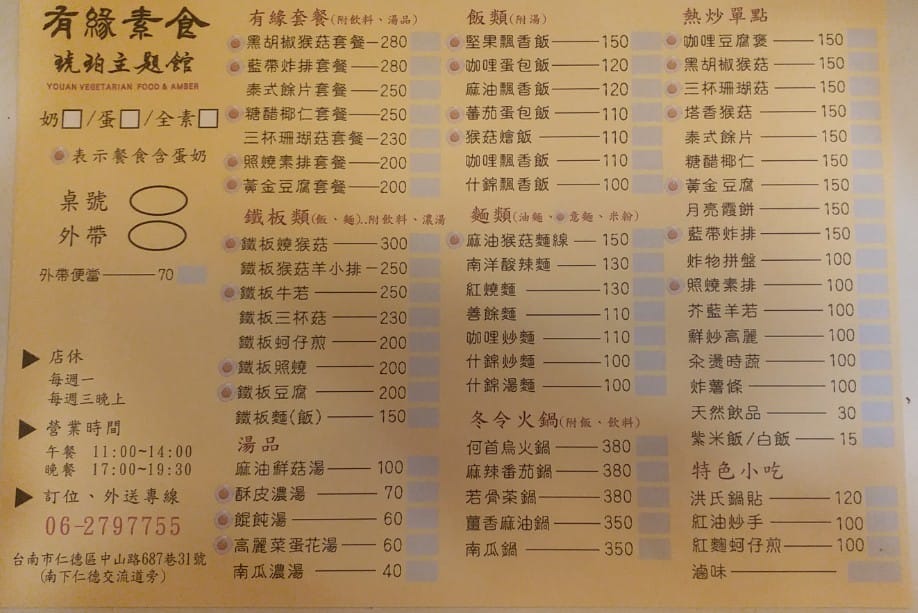 有緣素食
琥珀主題館
YOUAN VEGETARIAN FOOD & AMBER
奶□/蛋□/全素□
表示餐食含蛋奶
桌號
外帶
外帶便當 70
▶ 店休
每週一
每週三晚上
▶ 營業時間
午餐 11:00~14:00
晚餐 17:00~19:30
▶ 訂位、外送專線
06-2797755
台南市仁德區中山路687巷31號
(南下仁德交流道旁)
有緣套餐(附飲料、湯品)
黑胡椒猴菇套餐 280
藍帶炸排套餐 280
泰式餘片套餐 250
糖醋椰仁套餐 250
三杯珊瑚菇套餐 230
照燒素排套餐 200
黃金豆腐套餐 200
鐵板類(飯、麵)..附飲料、濃湯
鐵板燒猴菇 300
鐵板猴菇羊小排 250
鐵板牛若 250
鐵板三杯菇 230
鐵板蚵仔煎 200
鐵板照燒 200
鐵板豆腐 200
鐵板麵(飯) 150
湯品
麻油鮮菇湯 100
酥皮濃湯 70
餛飩湯 60
高麗菜蛋花湯 60
南瓜濃湯 40
飯類(附湯)
堅果飄香飯 150
咖哩蛋包飯 120
麻油飄香飯 120
蕃茄蛋包飯 110
猴菇燴飯 110
咖哩飄香飯 110
什錦飄香飯 100
麵類(油麵、意麵、米粉)
麻油猴菇麵線 150
南洋酸辣麵 130
紅燒麵 130
善餘麵 110
咖哩炒麵 110
什錦炒麵 100
什錦湯麵 100
冬令火鍋(附飯、飲料)
何首烏火鍋 380
麻辣番茄鍋 380
若骨茶鍋 380
薑香麻油鍋 350
南瓜鍋 350
熱炒單點
咖哩豆腐褒 150
黑胡椒猴菇 150
三杯珊瑚菇 150
塔香猴菇 150
泰式餘片 150
糖醋椰仁 150
黃金豆腐 150
月亮霞餅 150
藍帶炸排 150
炸物拼盤 100
照燒素排 100
芥藍羊若 100
鮮炒高麗 100
汆燙時蔬 100
炸薯條 100
天然飲品 30
紫米飯/白飯 15
特色小吃
洪氏鍋貼 120
紅油炒手 100
紅麴蚵仔煎 100
滷味